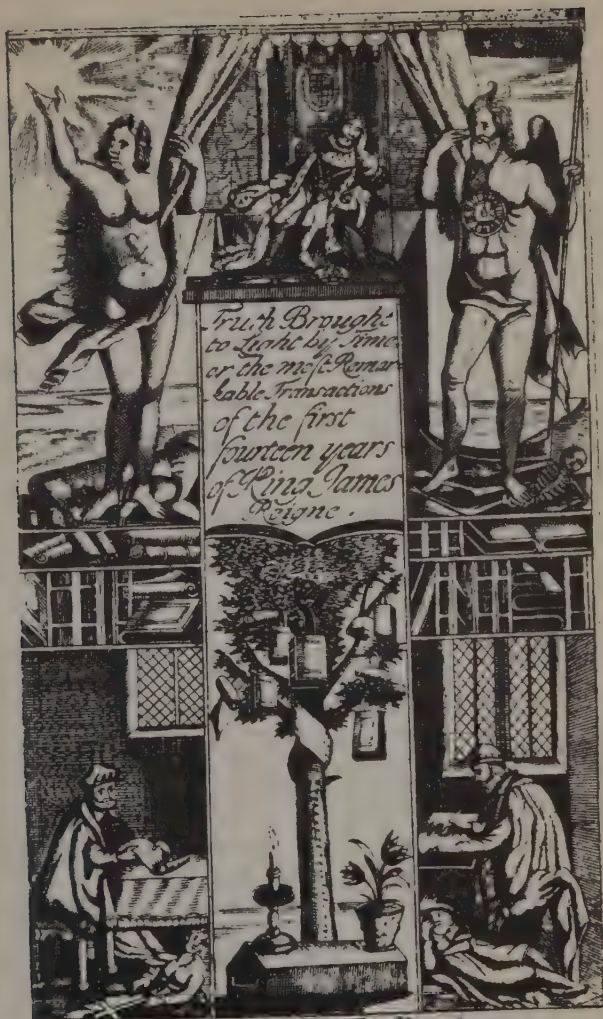 Truth Brought
to Light by Time
or the most Remar-
kable Transactions
of the first
fourteen years
of King James
Reigne.